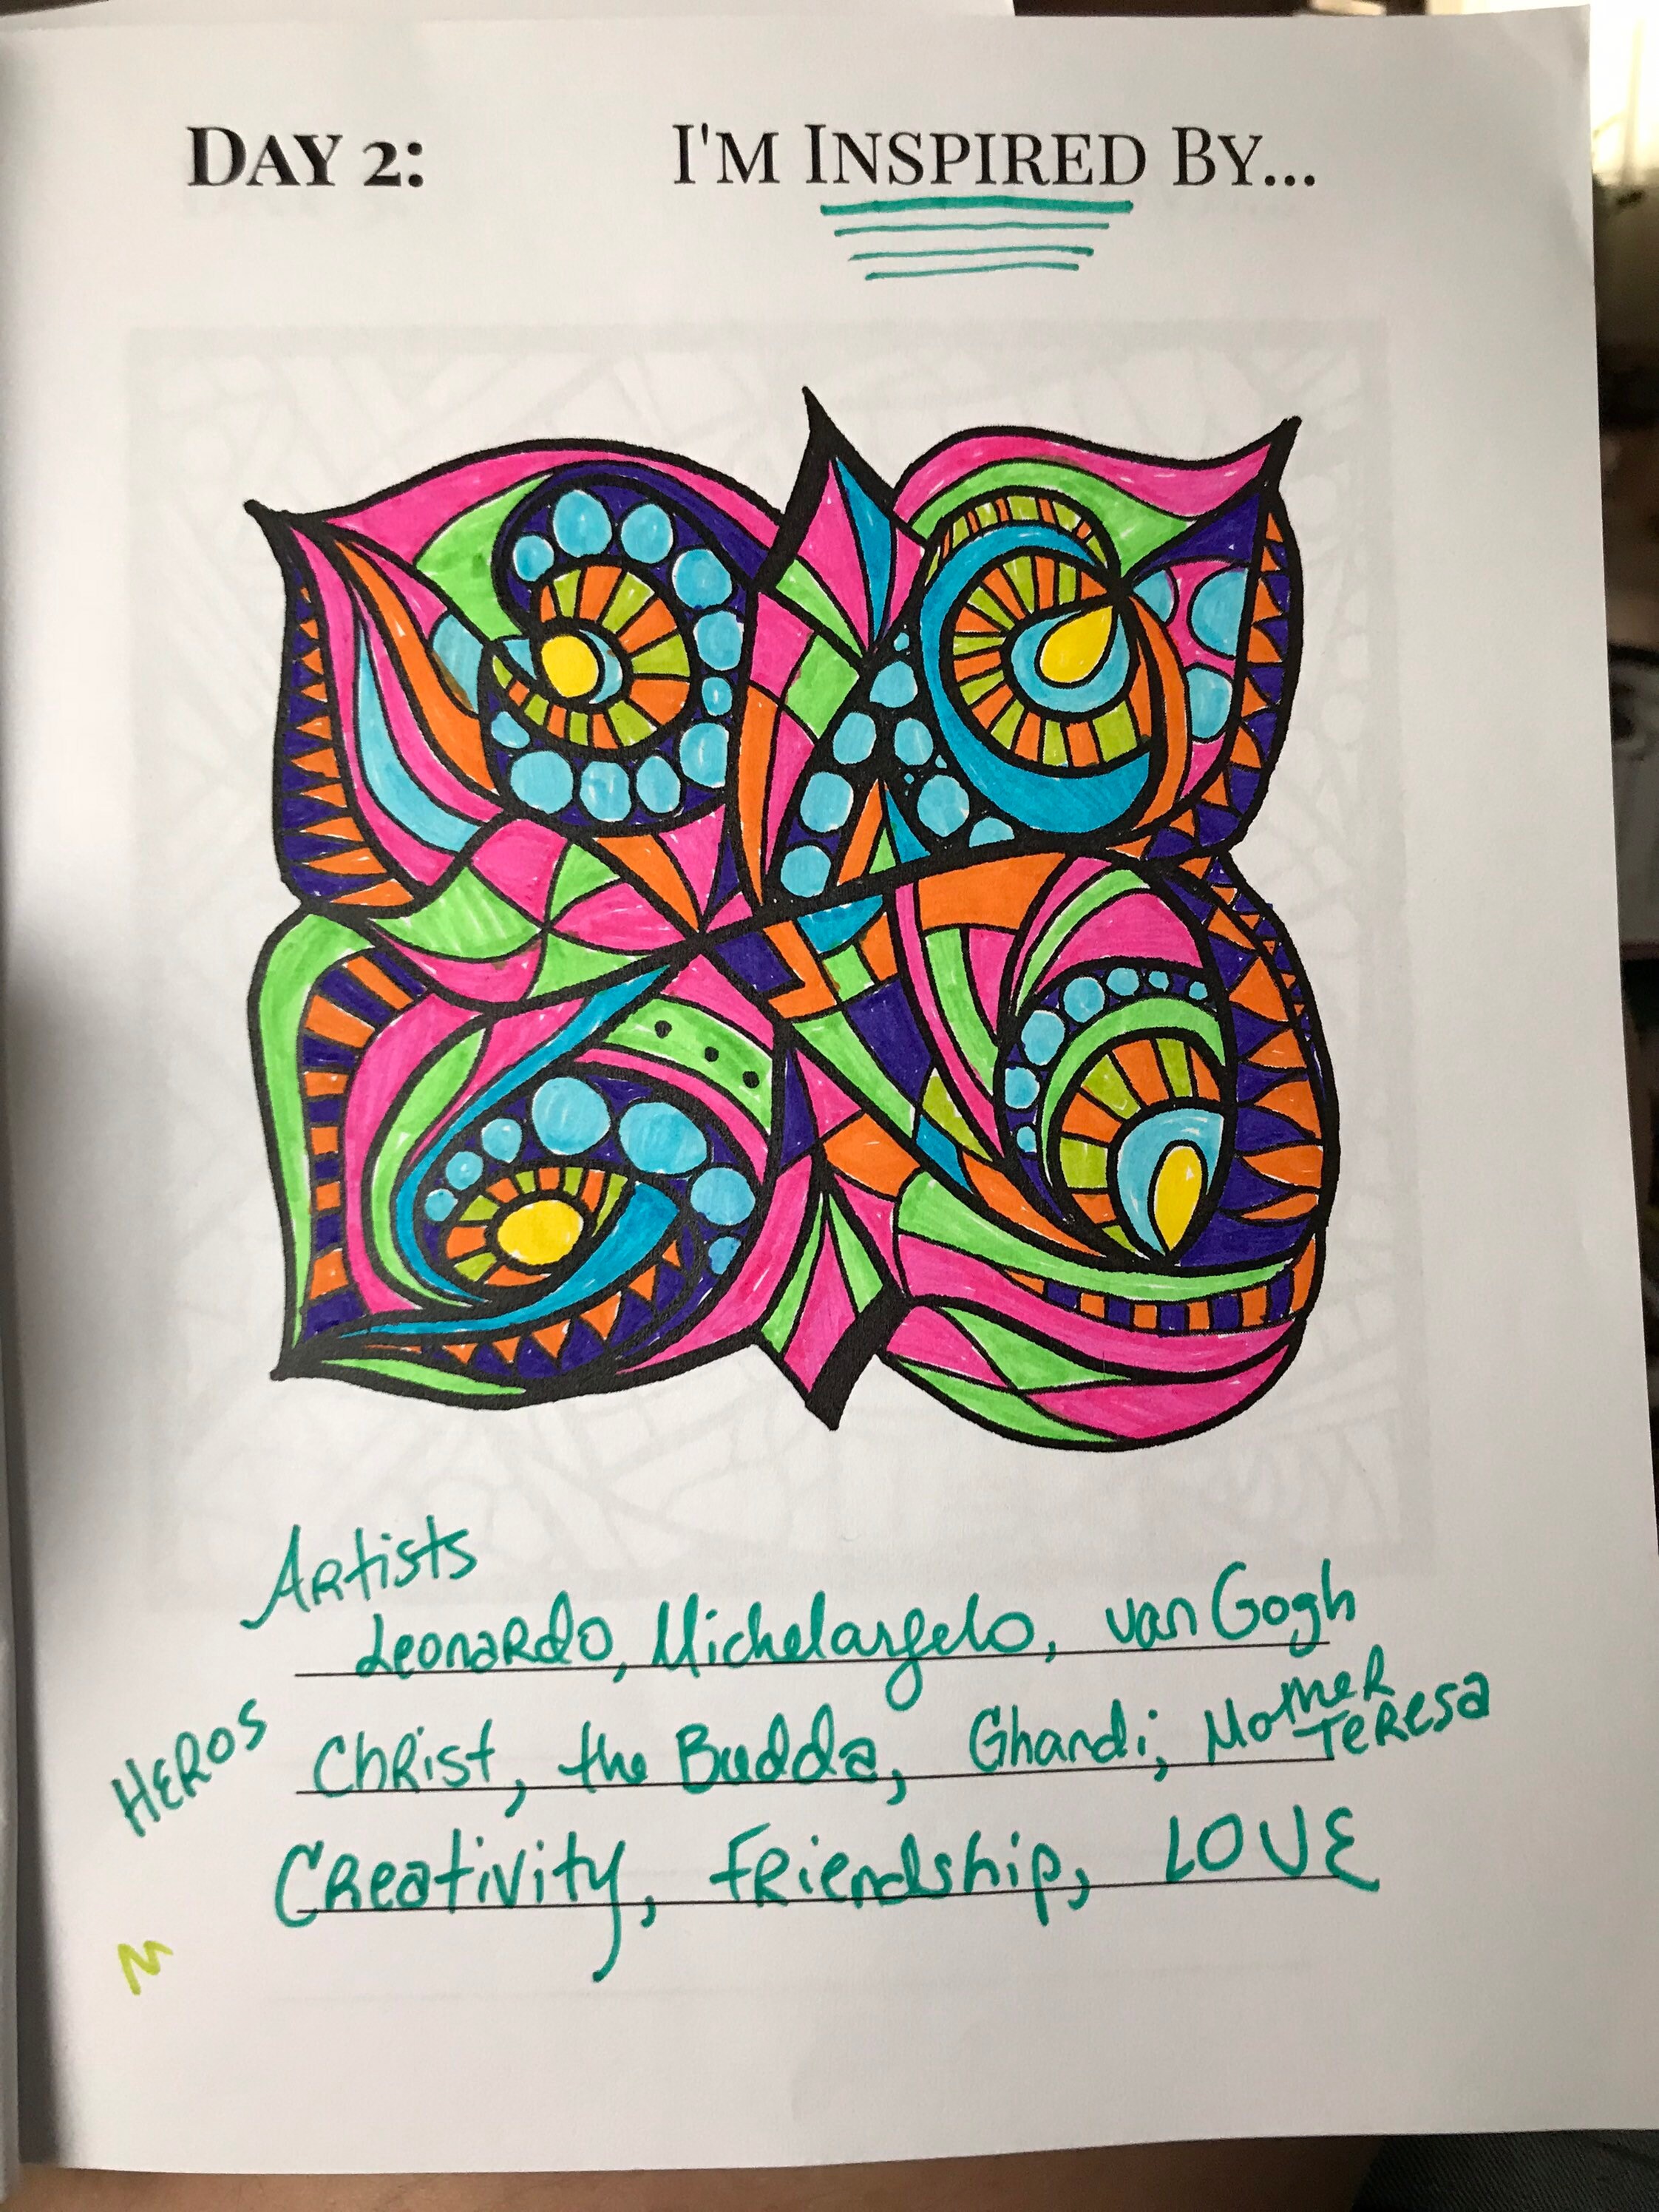 DAY 2: I'M INSPIRED BY...
Artists
Leonardo, Michelangelo, van Gogh
HEROS Christ, the Budda, Ghandi, Mother Teresa
Creativity, Friendship, LOVE